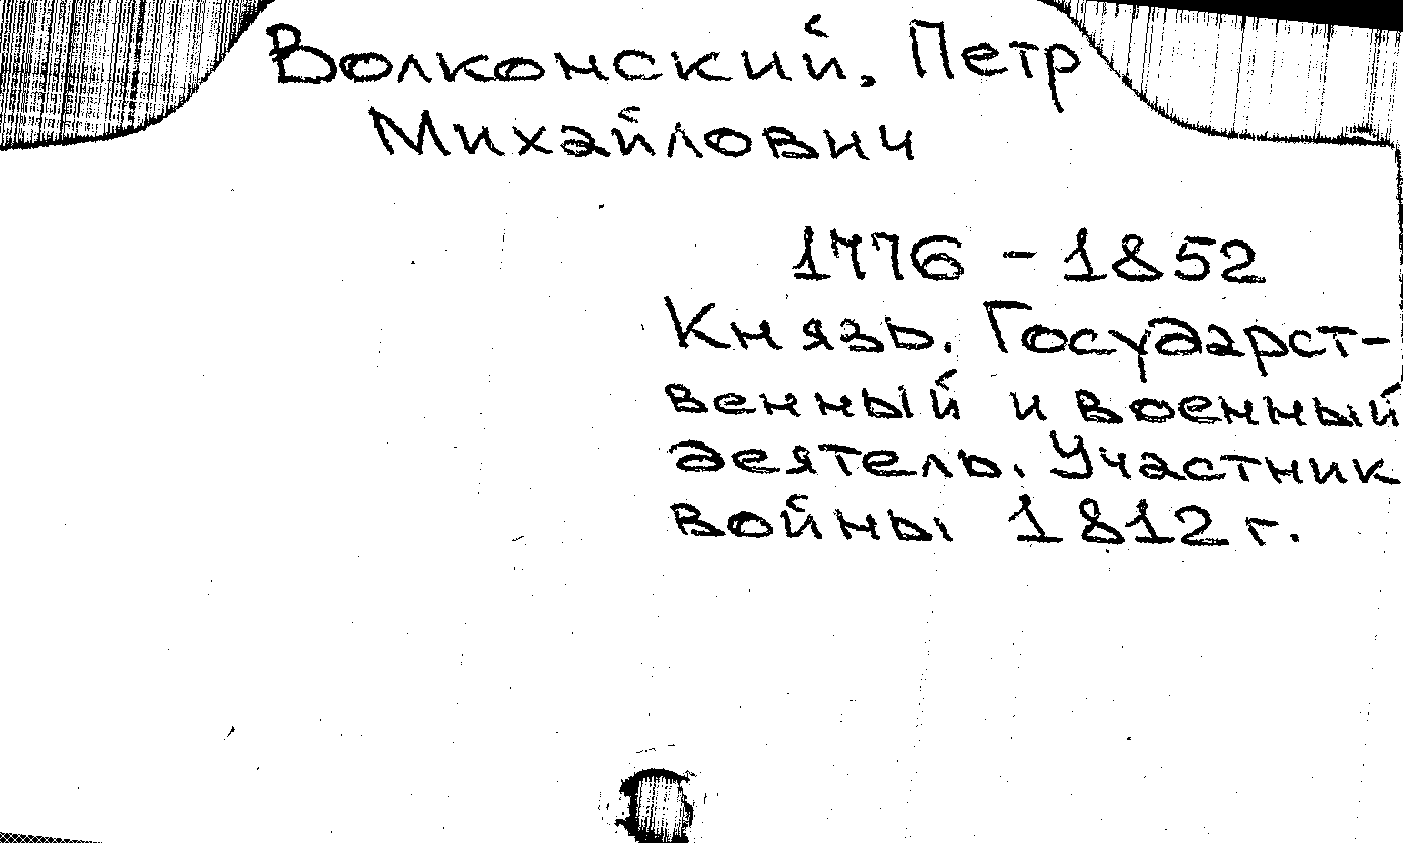 Волконский, Петр
Михайлович
1776 - 1852
Князь. Государст-
венный и военный
деятель. Участник
войны 1812 г.